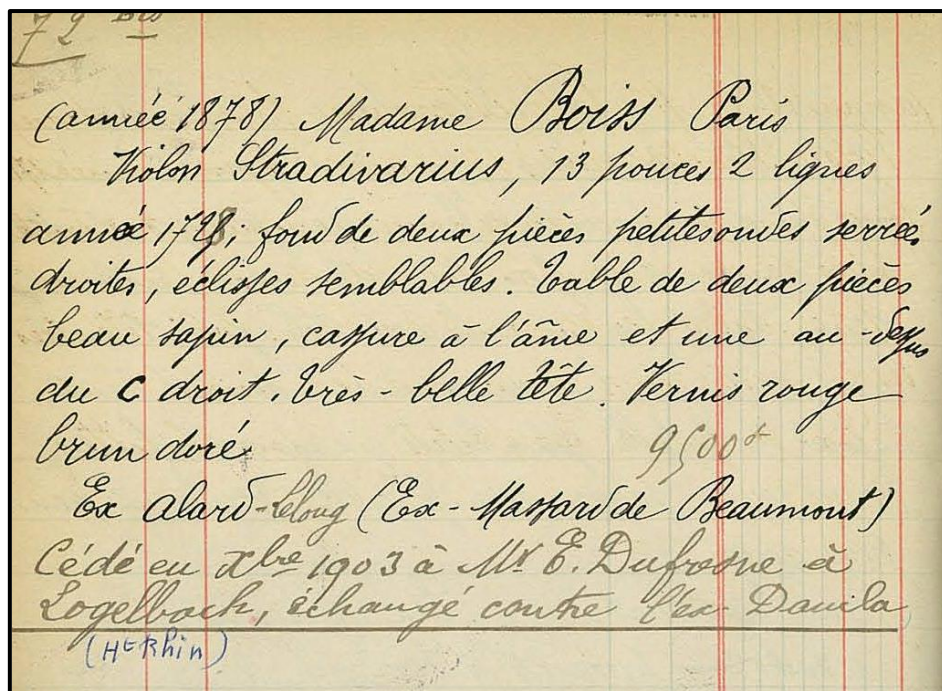 72 Bis
(année 1878) Madame Boiss Paris
Violon Stradivarius, 13 pouces 2 lignes
année 1728; fond de deux pièces petites ondes serrées
droites, éclisses semblables. Table de deux pièces
beau sapin, cassure à l'âme et une au-dessus
du C droit. très-belle tête. Vernis rouge
brun doré. 9500 f
Ex Alard- (Ex-Massard de Beaumont)
Cédé en Xbre 1903 à Mr E. Dufresne à
Logelbach, échangé contre l'ex Davila
(Ht Rhin)